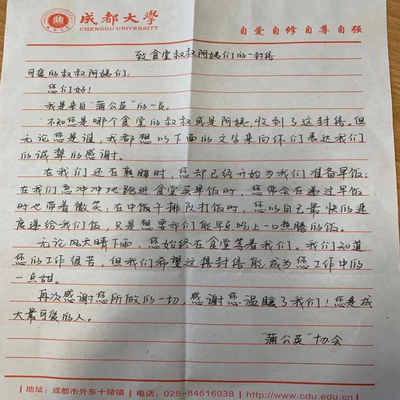 成都大学
CHENGDU UNIVERSITY
自爱自修自尊自强
致食堂叔叔阿姨们的一封信
可爱的叔叔阿姨们:
您们好!
我是来自"蒲公英"的一员。
不知您是哪个食堂的叔叔或是阿姨收到了这封信。但
无论您是谁,我都想以下面的文字来向你们表达我们
的诚挚的感谢。
在我们还在熟睡时,您却已经开始为我们准备早饭;
在我们急冲冲地跑进食堂买早饭时,您你会在递过早饭
时也带着微笑;在中饭午排队打饭时,您以自己最快的速
度递给我们饭,只是想要我们能早点吃上一口热腾的饭。
无论风大晴下雨,您始终在食堂等着我们。我们知道
您的工作很苦,但我们希望这信封信能成为您工作中的
一点甜。
再次感谢您所做的一切,感谢您温暖了我们!您是成
大最可爱的人。
"蒲公英"协会
地址:成都市外东十陵镇 电话:028-84616038 http://www.cdu.edu.cn